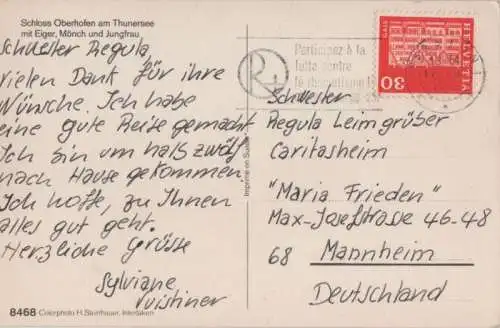 Schloss Oberhofen am Thunersee
mit Eiger, Mönch und Jungfrau
Schwester Regula
vielen Dank für ihre
Wünsche. Ich habe
eine gute Reise gemacht
Ich bin um halb zwölf
nach Hause gekommen
Ich hoffe, zu Ihnen
alles gut geht.
Herzliche Grüsse
Sylviane
8468 Colorphoto H. Steinhauer, Interlaken
Imprimé en Suisse
R
Participez à la
lutte contre
le rhumatisme
GAIS
HELVETIA
30
Schwester
Regula Leimgrüber
Caritasheim
"Maria Frieden"
Max-Josefstrasse 46-48
68 Mannheim
Deutschland